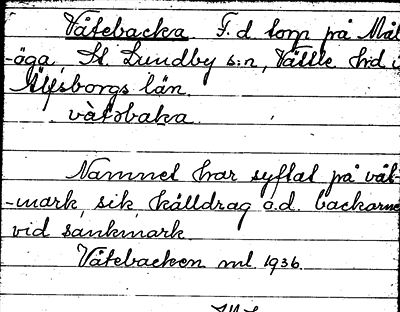 Våtebacka. F. d torp på Mål-
-öga, St. Lundby s:n, Vättle hrd i
Älfsborgs län.
våtəbaka.
Namnet har syftat på våt-
-mark, sik, källdrag o.d. backarne
vid sankmark.
Våtebacken ml. 1936.